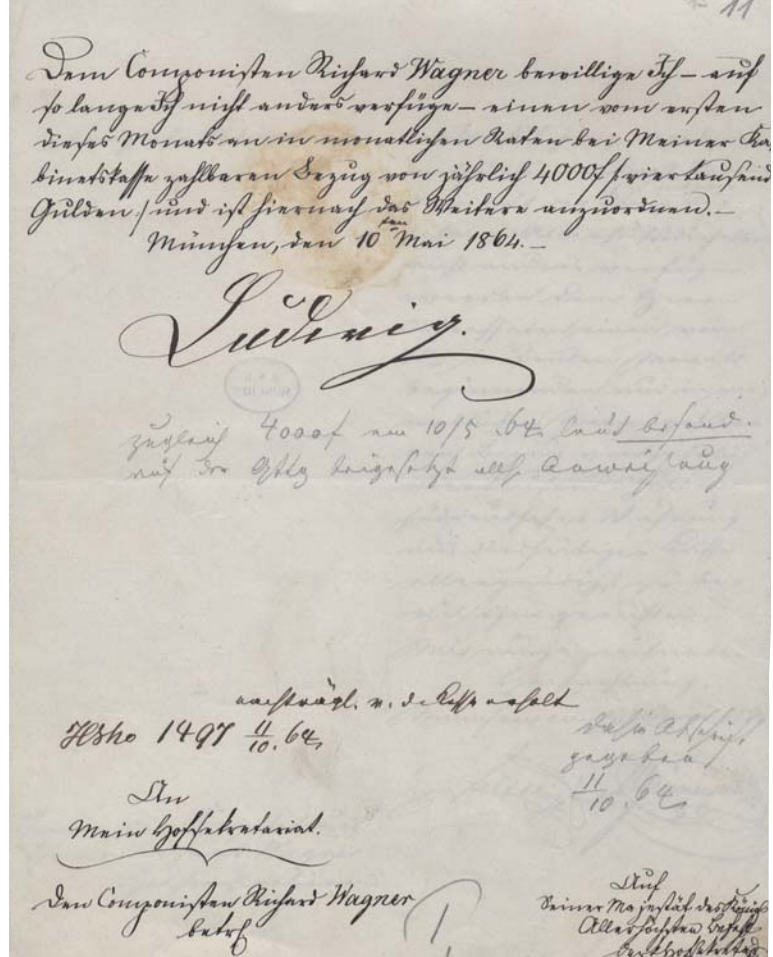 11
Dem Componisten Richard Wagner bewillige Ich – auf
so lange Ich nicht anders verfüge – einen vom ersten
dieses Monats an in monatlichen Raten bei Meiner Ka-
binetskasse zahlbaren Bezug von jährlich 4000f /: viertausend
Gulden :/ und ist hiernach das Weitere anzuordnen. –
München, den 10ten Mai 1864. –
Ludwig.
zugleich 4000f am 10/5 .64. laut besond.
auf der beigesetzt Anweisung
nachträgl. v. d. Kasse erholt
1497 11/10. 64.
dahin Abschrift
gegeben
11/10. 64
An
Mein Hofsekretariat.
Den Componisten Richard Wagner
betrf
Auf
Seiner Majestät des Königs
Allerhöchsten Befehl
der Hofsekretär